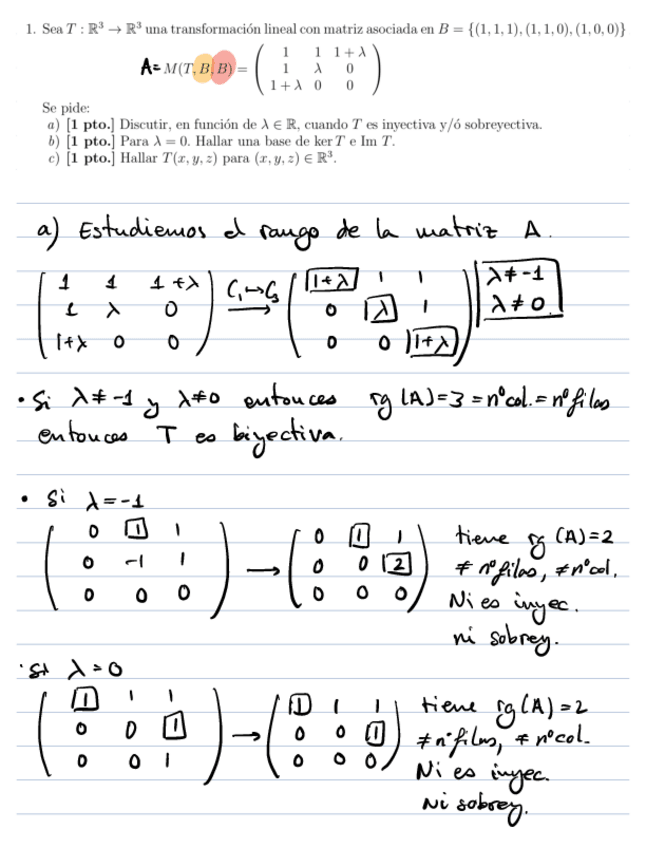 1. Sea T : ℝ³ → ℝ³ una transformación lineal con matriz asociada en B = {(1, 1, 1), (1, 1, 0), (1, 0, 0)}
A = M(T, B, B) = ( 1 1 1 + λ
1 λ 0
1 + λ 0 0 )
Se pide:
a) [1 pto.] Discutir, en función de λ ∈ ℝ, cuando T es inyectiva y/ó sobreyectiva.
b) [1 pto.] Para λ = 0. Hallar una base de ker T e Im T.
c) [1 pto.] Hallar T(x, y, z) para (x, y, z) ∈ ℝ³.
a) Estudiemos el rango de la matriz A.
( 1 1 1+λ ) C₁↔C₃ ( 1+λ 1 1 ) λ≠-1
( 1 λ 0 ) → ( 0 λ 1 ) λ≠0
( 1+λ 0 0 ) ( 0 0 1+λ )
• Si λ≠-1 y λ≠0 entonces rg(A)=3=nºcol.=nºfilas
entonces T es biyectiva.
• Si λ=-1
( 0 1 1 ) ( 0 1 1 ) tiene rg (A)=2
( 0 -1 1 ) → ( 0 0 2 ) ≠ nºfilas, ≠nºcol.
( 0 0 0 ) ( 0 0 0 ) Ni es inyec.
ni sobrey.
· Si λ=0
( 1 1 1 ) ( 1 1 1 ) tiene rg(A)=2
( 0 0 1 ) → ( 0 0 1 ) ≠nºfilas, ≠ nºcol.
( 0 0 1 ) ( 0 0 0 ) Ni es inyec.
Ni sobrey.